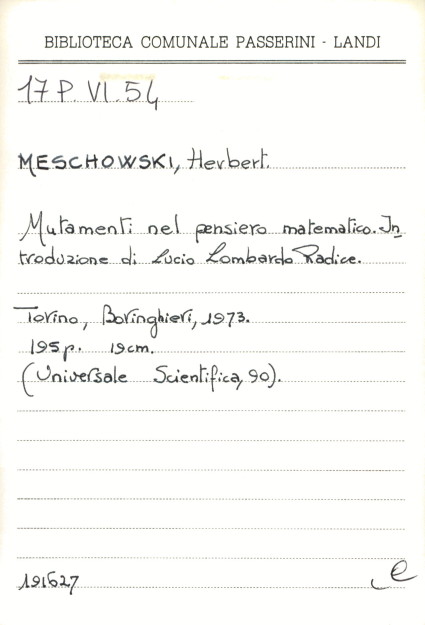 BIBLIOTECA COMUNALE PASSERINI - LANDI
17 P. VI. 54
MESCHOWSKI, Herbert.
Mutamenti nel pensiero matematico. In
troduzione di Lucio Lombardo Radice.
Torino, Boringhieri, 1973.
195 p. 19 cm.
(Universale Scientifica, 90).
191627
e